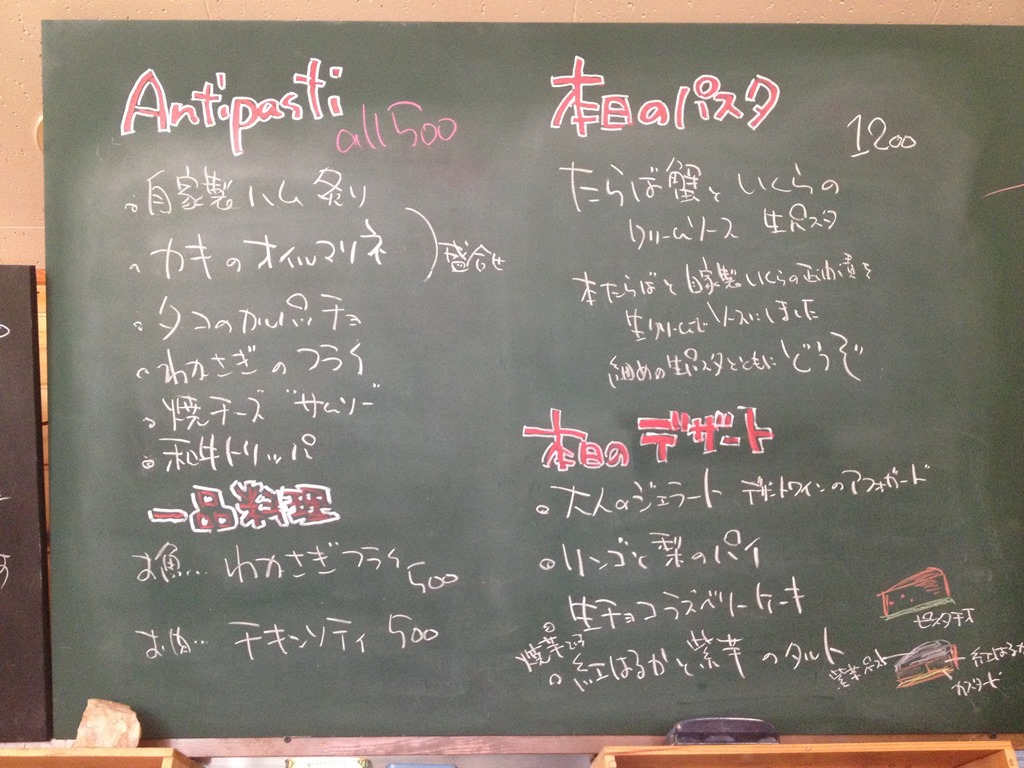 Antipasti
all 500
自家製ハム炙り
カキのオイルマリネ
盛合せ
タコのカルパッチョ
わかさぎのフライ
焼チーズ
和牛トリッパ
一品料理
お魚… わかさぎフライ 500
お肉… チキンソティ 500
本日のパスタ
1200
たらば蟹といくらの
クリームソース 生パスタ
本たらばと自家製いくらの正油漬を
生クリームで ソースにしました
細めの生パスタとともに どうぞ
本日のデザート
大人のジェラート デザートワインのアフォガード
リンゴと梨のパイ
生チョコラズベリーケーキ
焼芋
紅はるかと紫芋のタルト
ピスタチオ
紫芋ペースト
紅はるか
カスタード